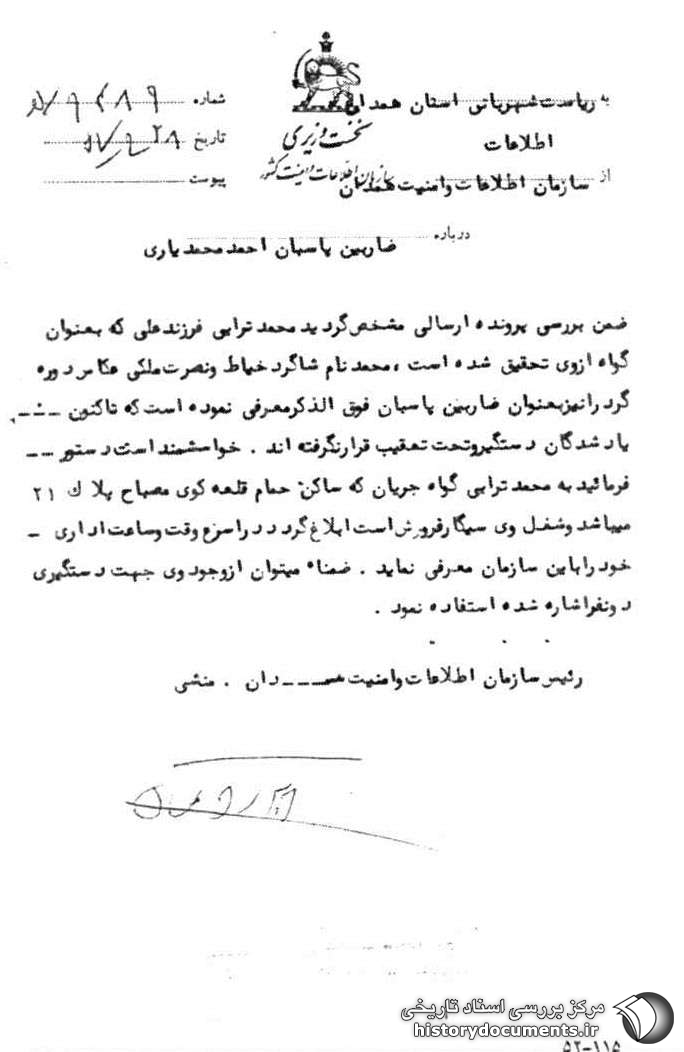 به ریاست شهربانی استان همدان
اطلاعات
از سازمان اطلاعات و امنیت همدان
نخست وزیری
سازمان اطلاعات و امنیت کشور
شماره
تاریخ
پیوست
درباره ضاربین پاسبان احمد محمدیاری
ضمن بررسی پرونده ارسالی مشخص گردید محمد ترابی فرزند علی که بعنوان
گواه ازوی تحقیق شده است ، محمد نام شاگرد خیاط ونصرت ملکی عکاس دوره
گرد رانیز بعنوان ضاربین پاسبان فوق الذکر معرفی نموده است که تاکنون
یاد شدگان دستگیر وتحت تعقیب قرارنگرفته اند . خواهشمند است دستور --
فرمائید به محمد ترابی گواه جریان که ساکن حمام قلعه کوی مصباح پلاک ۲۱
میباشد وشغل وی سیگارفروش است ابلاغ گردد در اسرع وقت وساعت اداری -
خود راباین سازمان معرفی نماید . ضمناً میتوان ازوجود وی جهت دستگیری
دونفر اشاره شده استفاده نمود .
رئیس سازمان اطلاعات وامنیت همـــدان . منشی
مرکز بررسی اسناد تاریخی
historydocuments.ir
۵۲-۱۱۵